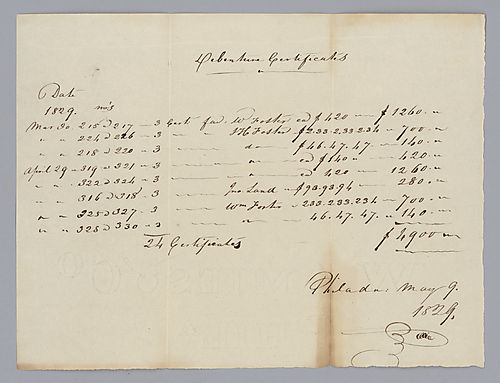 Debenture Certificates
Date
1829. No's
Mar 30 215 a 217 - 3 Certs fav. W Foster ea $420 - $1260 "
" " 224 a 226 - 3 " " Foster - $233.233.234 - 700 "
" " 218 a 220 - 3 " " do - $46.47.47. - 140 "
April 29 - 319 a 321 - 3 " " " ea $140 " - 420 "
" " 322 a 324 - 3 " " " ea 420 - 1260 "
" " 316 a 318 - 3 " " Jno Land - $93.93.94 280 "
" " 325 a 327 - 3 " " Wm Foster - 233.233.234 - 700 "
" " 328 a 330 - 3 " " " 46.47.47 " 140 "
24 Certificates $4900 "
Philada: May 9.
1829.